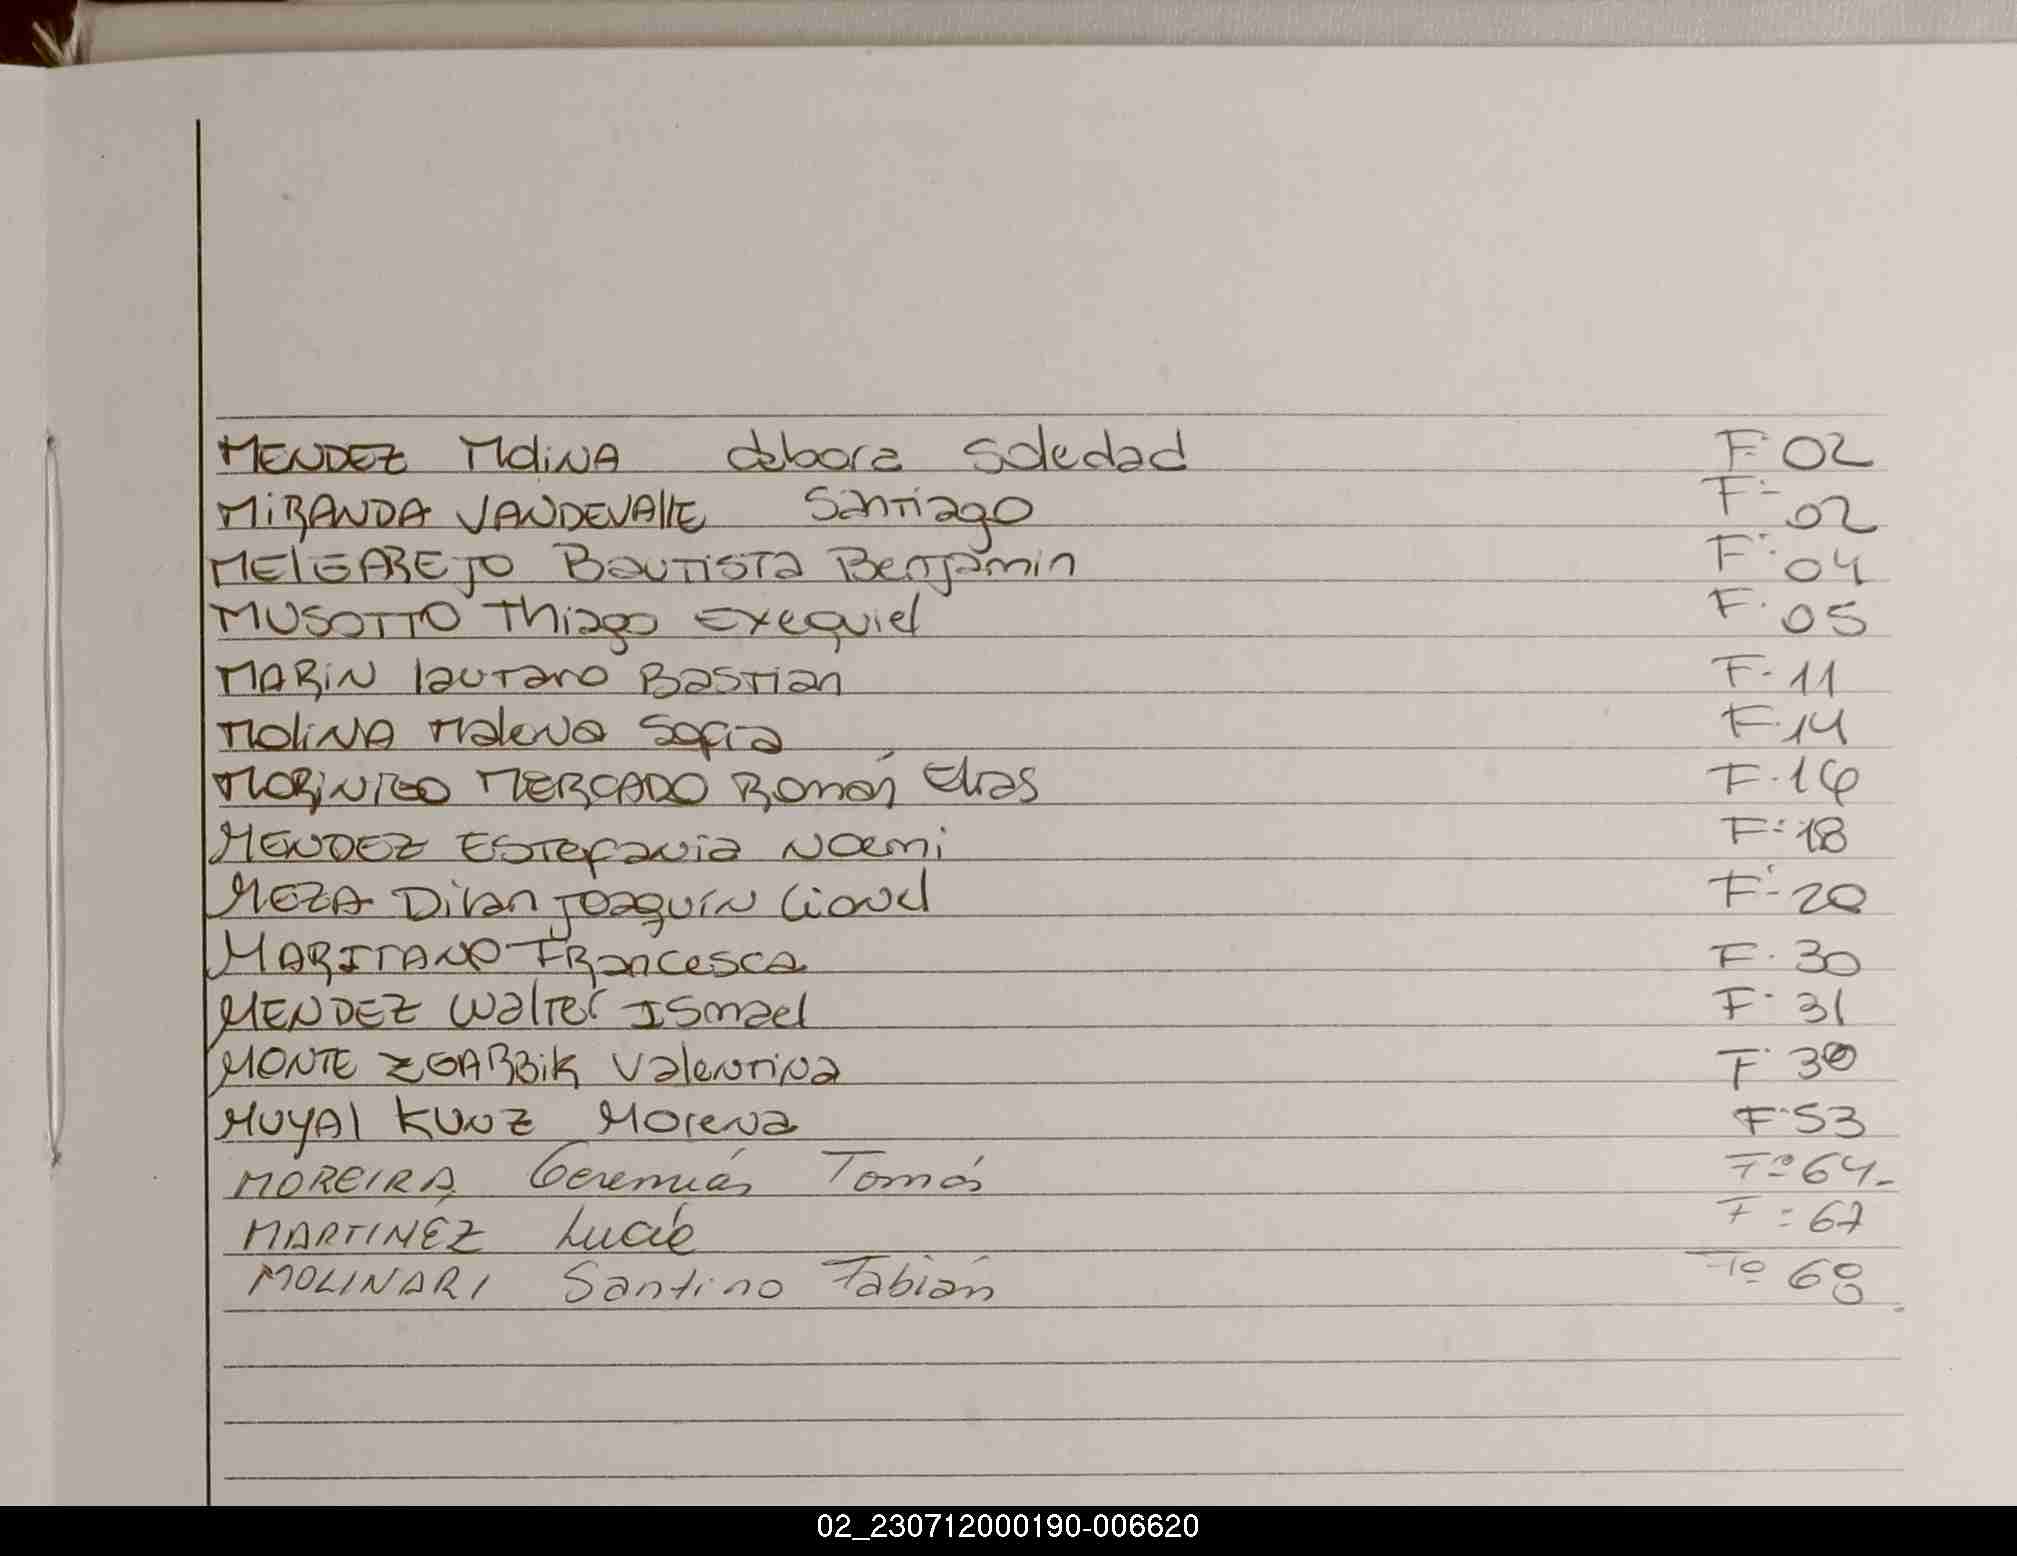 MENDEZ Molina debora Soledad F: 02
MiRANDA VANDEVAllE Santiago F:- 02
MElGAREJO Bautista Benjamin F:- 04
MUSOTTO Thiago Exequiel F. 05
MARiN lautaro Bastian F- 11
MoliNA Malena Sofia F. 14
MORiNIGO MERCADO Román Elias F- 16
MENDEZ Estefania Noemi F: 18
MEZA Dilan Joaquin Lionel F:- 20
MARITANO Francesca F. 30
MENDEZ Walter Ismael F- 31
MONTE ZGARBiK Valentina F.
MUYAl KUNZ Morena F: 53
MOREIRA Geremías Tomás Fº 64.-
MARTINEZ Lucía F = 67
MOLINARI Santino Fabián Fº 68.
02_230712000190-006620